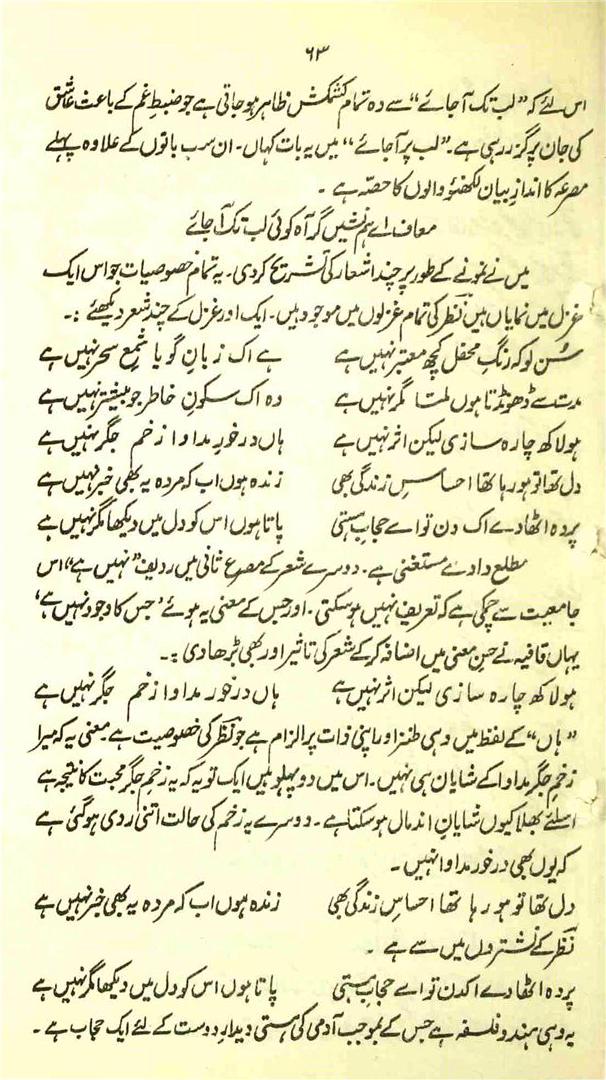 ۶۳
اس لئے کہ ”لب تک آ جائے“ سے وہ تمام کشمکش ظاہر ہو جاتی ہے جو ضبطِ غم کے باعث عاشق
کی جان پر گزر رہی ہے۔ ”لب پر آ جائے“ میں یہ بات کہاں۔ ان سب باتوں کے علاوہ پہلے
مصرعہ کا اندازِ بیان لکھنؤ والوں کا حصّہ ہے۔
معاف اے ہم نشیں گر آہ کوئی لب تک آ جائے
میں نے نمونے کے طور پر چند اشعار کی تشریح کر دی۔ یہ تمام خصوصیات جو اس ایک
غزل میں نمایاں ہیں نظر کی تمام غزلوں میں موجود ہیں۔ ایک اور غزل کے چند شعر دیکھئے :۔
سُن لو کہ رنگِ محفل کچھ معتبر نہیں ہے ہے اک زبانِ گویا شمعِ سحر نہیں ہے
مدت سے ڈھونڈتا ہوں ملتا مگر نہیں ہے وہ اک سکونِ خاطر جو بیشتر نہیں ہے
ہو لاکھ چارہ سازی لیکن اثر نہیں ہے ہاں درخورِ مداوا زخمِ جگر نہیں ہے
دل تھا تو ہو رہا تھا احساسِ زندگی بھی زندہ ہوں اب کہ مردہ یہ بھی خبر نہیں ہے
پردہ اٹھا دے اک دن تو اے حجابِ ہستی پاتا ہوں اس کو دل میں دیکھا مگر نہیں ہے
مطلع داد سے مستغنی ہے۔ دوسرے شعر کے مصرعِ ثانی میں ردیف ”نہیں ہے“ اس
جامعیت سے چمکی ہے کہ تعریف نہیں ہو سکتی۔ اور جس کے معنی یہ ہوئے ’جس کا وجود نہیں ہے‘
یہاں قافیہ نے حسنِ معنی میں اضافہ کر کے شعر کی تاثیر اور بھی بڑھا دی :۔
ہو لاکھ چارہ سازی لیکن اثر نہیں ہے ہاں درخورِ مداوا زخمِ جگر نہیں ہے
”ہاں“ کے لفظ میں وہی طنز اور اپنی ذات پر الزام ہے جو نظر کی خصوصیت ہے۔ معنی یہ کہ میرا
زخمِ جگر مداوا کے شایان ہی نہیں۔ اس میں دو پہلو ہیں ایک تو یہ کہ یہ زخمِ جگر محبت کا نتیجہ ہے
اسلئے بھلا کیوں شایانِ اندمال ہو سکتا ہے۔ دوسرے یہ زخم کی حالت اتنی ردی ہو گئی ہے
کہ یوں بھی درخورِ مداوا نہیں۔
دل تھا تو ہو رہا تھا احساسِ زندگی بھی زندہ ہوں اب کہ مردہ یہ بھی خبر نہیں ہے
نظر کے نشتروں میں سے ہے۔
پردہ اٹھا دے اکدن تو اے حجابِ ہستی پاتا ہوں اس کو دل میں دیکھا مگر نہیں ہے
یہ وہی ہندو فلسفہ ہے جس کے بموجب آدمی کی ہستی دیدارِ دوست کے لئے ایک حجاب ہے۔